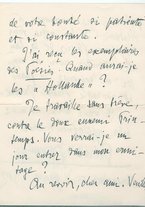 de votre bonté si patiente
et si constante.
J'ai reçu les exemplaires
des Poésies. Quand aurai-je
les « Hollande » ?
Je travaille sans fièvre,
contre le doux ennemi Prin-
temps. Vous verrai-je un
jour entrer dans mon ermi-
tage ?
Au revoir, cher ami.